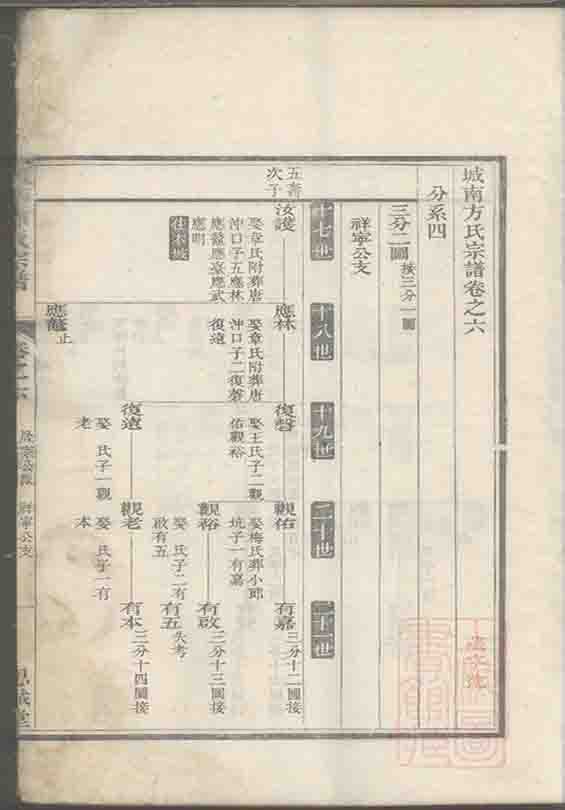 城南方氏宗譜卷之六
分系四
三分二圖 接三分一圖
祥寧公支
十七世
十八世
十九世
二十世
二十一世
五壽次子
汝護
娶章氏附葬唐
沖口子五應林
應鰲應臺應武
應明
住木坂
應林
娶章氏附葬唐
沖口子二復聲
復遠
復聲
娶王氏子二觀
佑觀裕
觀佑
娶梅氏葬小郎
坑子一有嘉
有嘉
三分十二圖接
觀裕
娶 氏子二有
啟有五
有啟
三分十三圖接
有五
失考
復遠
娶 氏子一觀
老
觀老
娶 氏子一有
本
有本
三分十四圖接
應鰲
止
宗譜
卷之六
祥寧公支